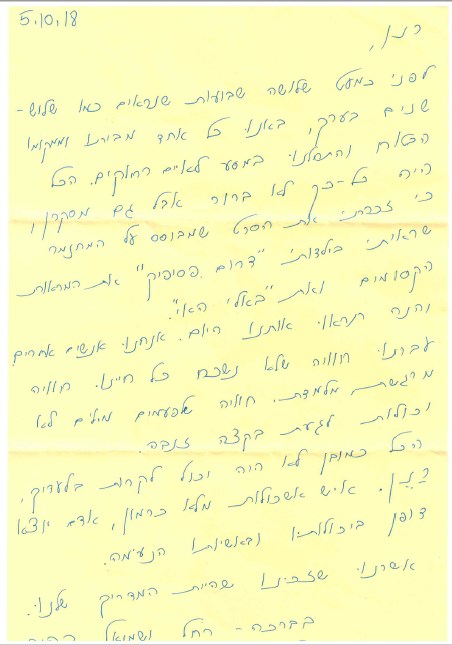 5.10.18
רנן,
לפני כמעט שלושה שבועות שנראים כמו שלוש-
שנים בערך, באנו כל אחד מביתו וממקומו
הבטוח והתחלנו במסע לאיים רחוקים. הכל
היה כל-כך לא ברור אבל גם מסקרן,
כי זכרתי את הסרט שמבוסס על המחזמר
שראיתי בילדותי "דרום פסיפיק" את המראות
הקסומים ואת "באלי האי".
והנה תראו אותנו היום. אנחנו אנשים אחרים
עברנו חוויה שלא נשכח כל חיינו. חוויה
מרגשת, מלמדת. חוויה שלפעמים מילים לא
יכולות לגעת בקצה זנבה.
הכל כמובן לא היה יכול לקרות בלעדיך,
רנן. איש אשכולות מלא כרמון, אדם יוצא
דופן ביכולותיו ובאישיותו הנעימה.
אשרנו שזכינו שהיית המדריך שלנו.
בברכה - רחל ושמואל